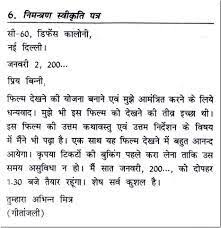 6. निमन्त्रण स्वीकृति पत्र
सी-60, डिफेंस कालोनी,
नई दिल्ली।
जनवरी 2, 200...
प्रिय बिन्नी,
फिल्म देखने की योजना बनाने एवं मुझे आमंत्रित करने के लिये
धन्यवाद। मुझे भी इस फिल्म को देखने की तीव्र इच्छा थी।
इस फिल्म की उत्तम कथावस्तु एवं उत्तम निर्देशन के विषय
में मैंने भी पढ़ा है। एक साथ यह फिल्म देखने में बहुत आनन्द
आयेगा। कृपया टिकटों की बुकिंग पहले करा लेना ताकि उस
समय असुविधा न हो। मैं सात जनवरी, 200... को दोपहर
1-30 बजे तैयार रहूंगा। शेष सर्व कुशल है।
तुम्हारा अभिन्न मित्र
(गीतांजली)